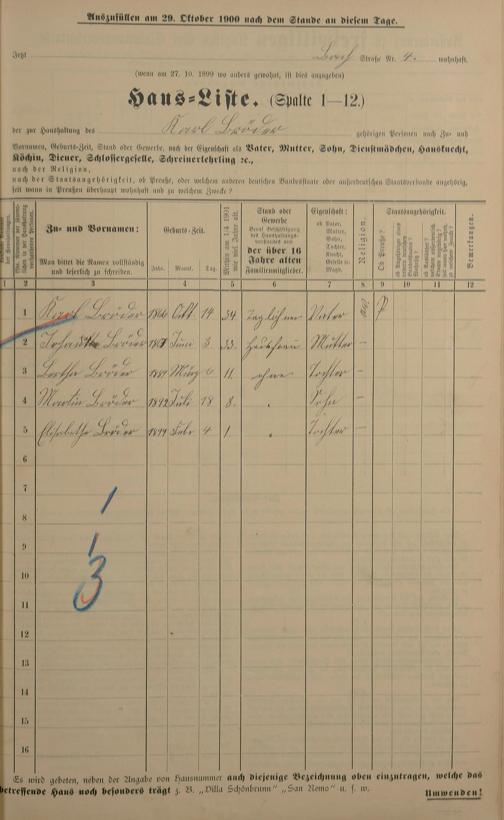 Auszufüllen am 29. Oktober 1900 nach dem Stande an diesem Tage.
Jetzt Bach Straße Nr. 4. wohnhaft.
(wenn am 27. 10. 1899 wo anders gewohnt, ist dies anzugeben)
Haus-Liste. (Spalte 1—12.)
der zur Haushaltung des Karl Bröder gehörigen Personen nach Zu- und
Vornamen, Geburts-Zeit, Stand oder Gewerbe, nach der Eigenschaft als Vater, Mutter, Sohn, Dienstmädchen, Hausknecht,
Köchin, Diener, Schlossergeselle, Schreinerlehrling ꝛc.,
nach der Religion,
nach der Staatsangehörigkeit, ob Preuße, oder welchem anderen deutschen Bundesstaate oder außerdeutschen Staatsverbande angehörig,
seit wann in Preußen überhaupt wohnhaft und zu welchem Zwecke?
Zu- und Vornamen:
Man bittet die Namen vollständig
und leserlich zu schreiben.
Geburts-Zeit.
Jahr. Monat. Tag.
Stand oder
Gewerbe
der über 16
Jahre alten
Familienmitglieder.
Eigenschaft:
ob Vater,
Mutter,
Sohn,
Tochter,
Knecht,
Magd.
Religion.
Staatsangehörigkeit.
Ob Preuße?
Bemerkungen.
1 2 3 4 5 6 7 8 9 10 11 12
1 Karl Bröder 1866 Okt 14 34 Taglöhner Vater P
2 Bröder Juni 3 33 Hausfrau Mutter —
3 Bertha Bröder März 11. ohne Tochter —
4 Martin Bröder 1892 Juli 18 8. Sohn —
5 Elisabetha Bröder 1899 Febr 4 1 Tochter —
6
7
1
8
9
1
10
3
11
12
13
14
15
16
Es wird gebeten, neben der Angabe von Hausnummer auch diejenige Bezeichnung oben einzutragen, welche das
betreffende Haus noch besonders trägt z. B. „Villa Schönbrunn" „San Remo" u. s. w.
Umwenden!